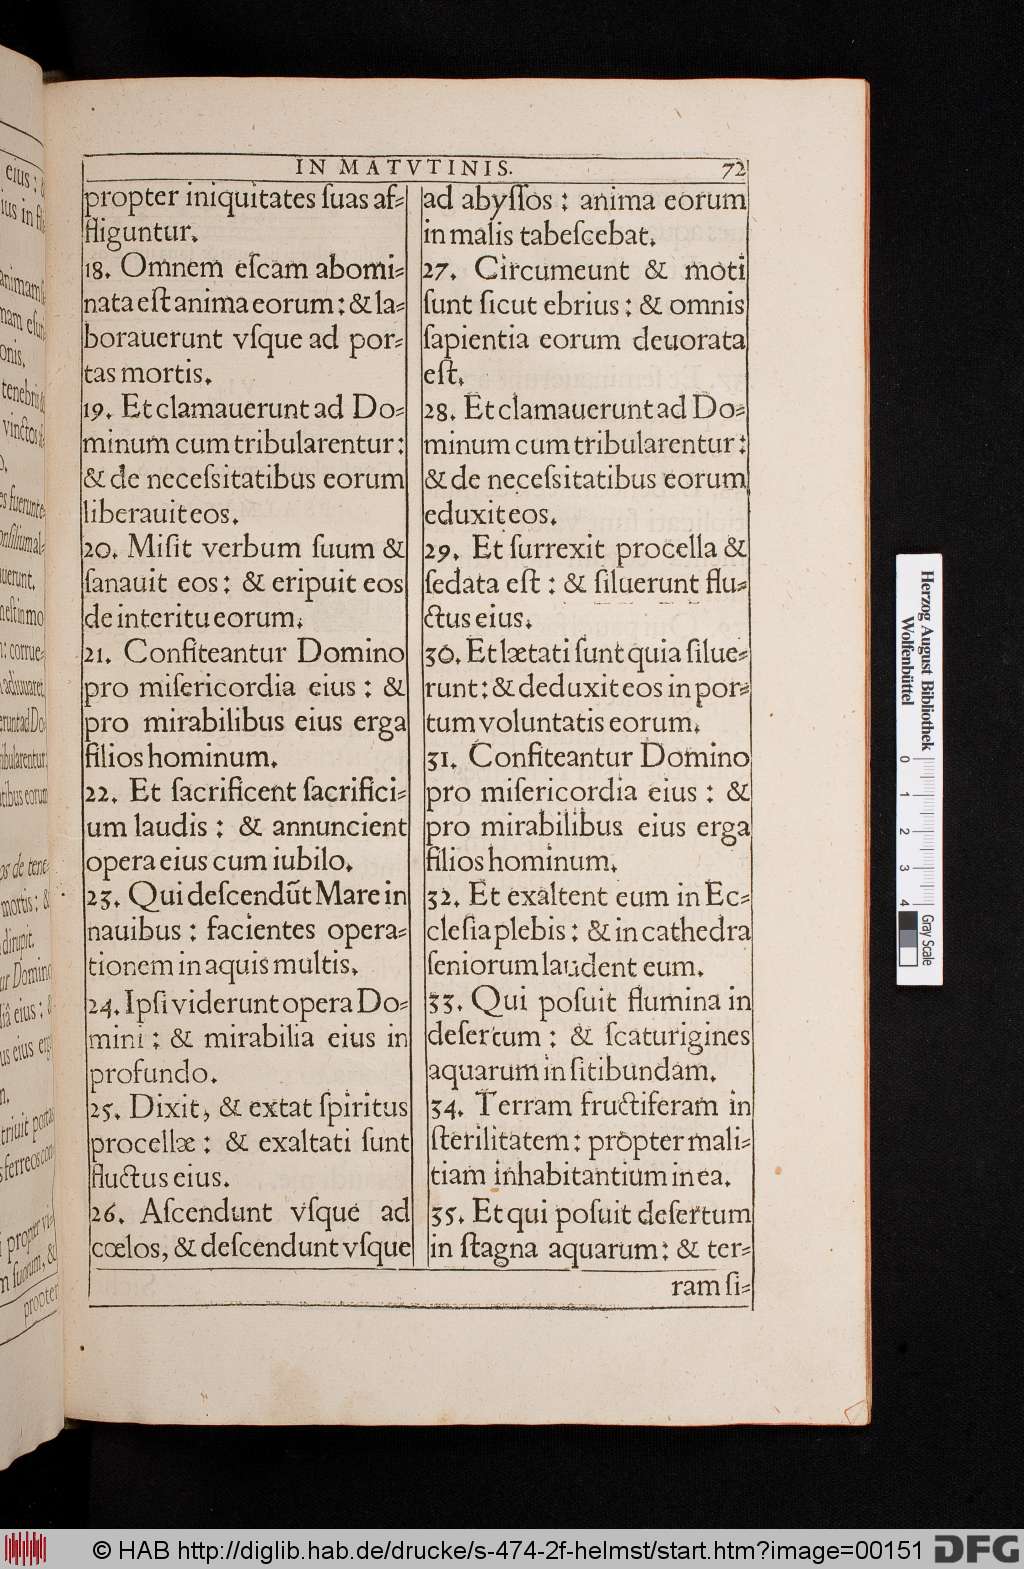 IN MATVTINIS. 72
propter iniquitates ſuas af-
fliguntur.
18. Omnem eſcam abomi-
nata eſt anima eorum: & la-
borauerunt vſque ad por-
tas mortis.
19. Et clamauerunt ad Do-
minum cum tribularentur:
& de neceſsitatibus eorum
liberauit eos.
20. Miſit verbum ſuum &
ſanauit eos: & eripuit eos
de interitu eorum.
21. Confiteantur Domino
pro miſericordia eius: &
pro mirabilibus eius erga
filios hominum.
22. Et ſacrificent ſacrifici-
um laudis: & annuncient
opera eius cum iubilo.
23. Qui deſcendūt Mare in
nauibus: facientes opera-
tionem in aquis multis.
24. Ipſi viderunt opera Do-
mini: & mirabilia eius in
profundo.
25. Dixit, & extat ſpiritus
procellæ: & exaltati ſunt
fluctus eius.
26. Aſcendunt vſque ad
cœlos, & deſcendunt vſque
ad abyſſos: anima eorum
in malis tabeſcebat.
27. Circumeunt & moti
ſunt ſicut ebrius: & omnis
ſapientia eorum deuorata
eſt.
28. Et clamauerunt ad Do-
minum cum tribularentur:
& de neceſsitatibus eorum
eduxit eos.
29. Et ſurrexit procella &
ſedata eſt: & ſiluerunt flu-
ctus eius.
30. Et lætati ſunt quia ſilue-
runt: & deduxit eos in por-
tum voluntatis eorum.
31. Confiteantur Domino
pro miſericordia eius: &
pro mirabilibus eius erga
filios hominum.
32. Et exaltent eum in Ec-
cleſia plebis: & in cathedra
ſeniorum laudent eum.
33. Qui poſuit flumina in
deſertum: & ſcaturigines
aquarum in ſitibundam.
34. Terram fructiferam in
ſterilitatem: propter mali-
tiam inhabitantium in ea.
35. Et qui poſuit deſertum
in ſtagna aquarum: & ter-
ram ſi-
Herzog August Bibliothek
Wolfenbüttel
0 1 2 3 4
Gray Scale
© HAB http://diglib.hab.de/drucke/s-474-2f-helmst/start.htm?image=00151
DFG